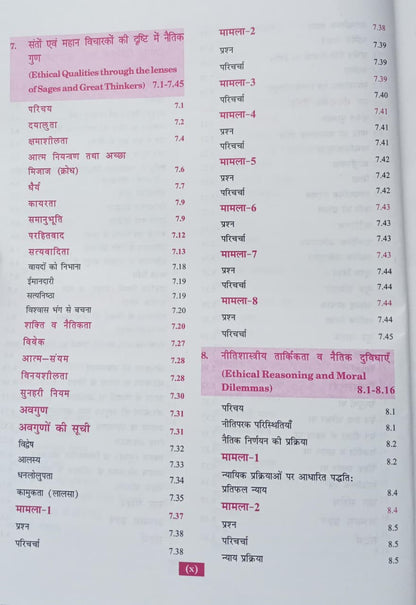 7. संतों एवं महान विचारकों की दृष्टि में नैतिक
गुण
(Ethical Qualities through the lenses
of Sages and Great Thinkers) 7.1-7.45
परिचय 7.1
दयालुता 7.2
क्षमाशीलता 7.4
आत्म नियन्त्रण तथा अच्छा
मिजाज (क्रोध) 7.6
धैर्य 7.7
कायरता 7.9
समानुभूति 7.9
परहितवाद 7.12
सत्यवादिता 7.13
वायदों को निभाना 7.18
ईमानदारी 7.19
सत्यनिष्ठा 7.19
विश्वास भंग से बचना 7.20
शक्ति व नैतिकता 7.20
विवेक 7.27
आत्म-संयम 7.28
विनयशीलता 7.28
सुनहरी नियम 7.30
अवगुण 7.31
अवगुणों की सूची 7.31
विद्वेष 7.32
आलस्य 7.33
धनलोलुपता 7.34
कामुकता (लालसा) 7.35
मामला-1 7.37
प्रश्न 7.38
परिचर्चा 7.38
मामला-2 7.38
प्रश्न 7.39
परिचर्चा 7.39
मामला-3 7.39
परिचर्चा 7.40
मामला-4 7.41
प्रश्न 7.41
परिचर्चा 7.41
मामला-5 7.42
प्रश्न 7.42
परिचर्चा 7.42
मामला-6 7.43
प्रश्न 7.43
परिचर्चा 7.43
मामला-7 7.43
प्रश्न 7.44
परिचर्चा 7.44
मामला-8 7.44
प्रश्न 7.44
परिचर्चा 7.45
8. नीतिशास्त्रीय तार्किकता व नैतिक दुविधाएँ
(Ethical Reasoning and Moral
Dilemmas) 8.1-8.16
परिचय 8.1
नीतिपरक परिस्थितियाँ 8.1
नैतिक निर्णयन की प्रक्रिया 8.2
मामला-1 8.2
न्यायिक प्रक्रियाओं पर आधारित पद्धति:
प्रतिफल न्याय 8.4
मामला-2 8.4
प्रश्न 8.5
परिचर्चा 8.5
न्याय प्रक्रिया 8.5
(x)